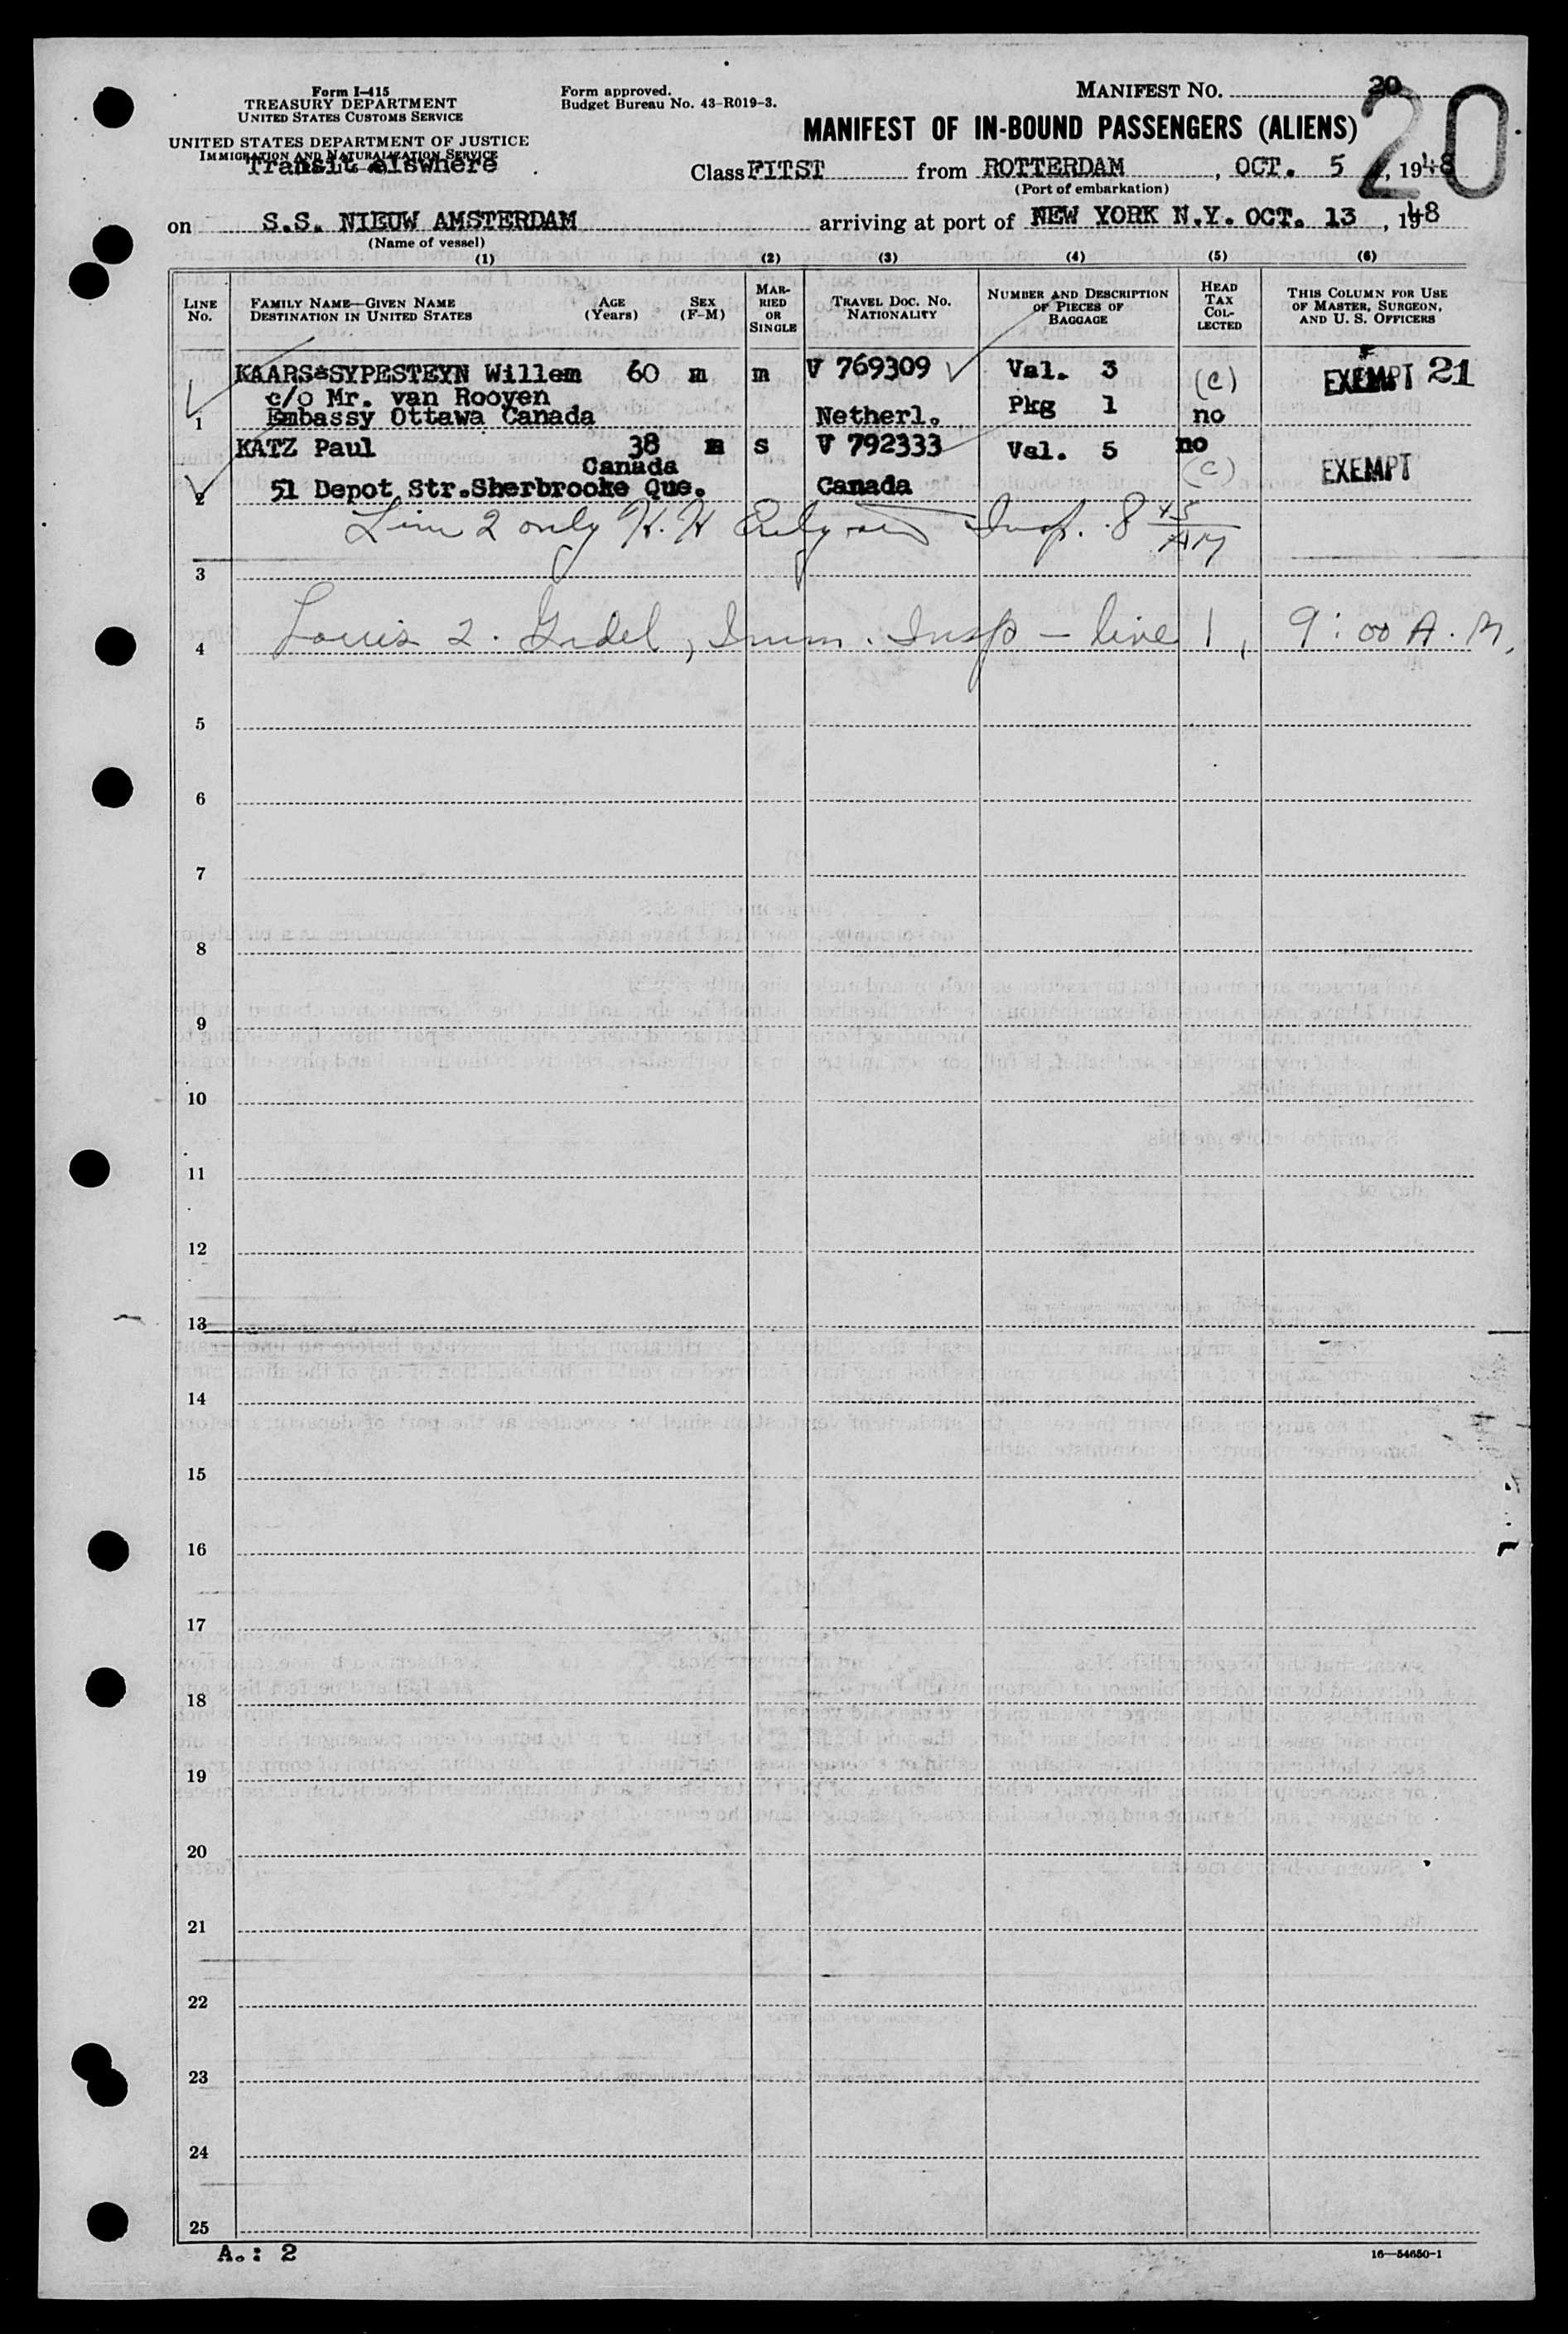 Form I-415
TREASURY DEPARTMENT
UNITED STATES CUSTOMS SERVICE
UNITED STATES DEPARTMENT OF JUSTICE
IMMIGRATION AND NATURALIZATION SERVICE
Transit elswhere
Form approved.
Budget Bureau No. 43-R019-3.
MANIFEST NO. 20
20
MANIFEST OF IN-BOUND PASSENGERS (ALIENS)
Class FITST from ROTTERDAM, OCT. 5, 1948
(Port of embarkation)
on S.S. NIEUW AMSTERDAM arriving at port of NEW YORK N.Y. OCT. 13, 148
(Name of vessel)
(1) (2) (3) (4) (5) (6)
LINE No. FAMILY NAME—GIVEN NAME DESTINATION IN UNITED STATES AGE (Years) SEX (F-M) MARRIED OR SINGLE TRAVEL DOC. NO. NATIONALITY NUMBER AND DESCRIPTION OF PIECES OF BAGGAGE HEAD TAX COLLECTED THIS COLUMN FOR USE OF MASTER, SURGEON, AND U. S. OFFICERS
KAARS SYPESTEYN Willem 60 m m V 769309 Val. 3 (c) EXEMPT 21
c/o Mr. van Rooyen Pkg 1
1 Embassy Ottawa Canada Netherl. no
KATZ Paul 38 m s V 792333 Val. 5 no
Canada (c) EXEMPT
2 51 Depot Str.Sherbrooke Que. Canada
Line 2 only K. H Insp. 8 45 AM
3
Louis 2. Gidel, Imm. Insp — line 1, 9:00 A.M.
4
5
6
7
8
9
10
11
12
13
14
15
16
17
18
19
20
21
22
23
24
25
A.: 2
16—54650-1